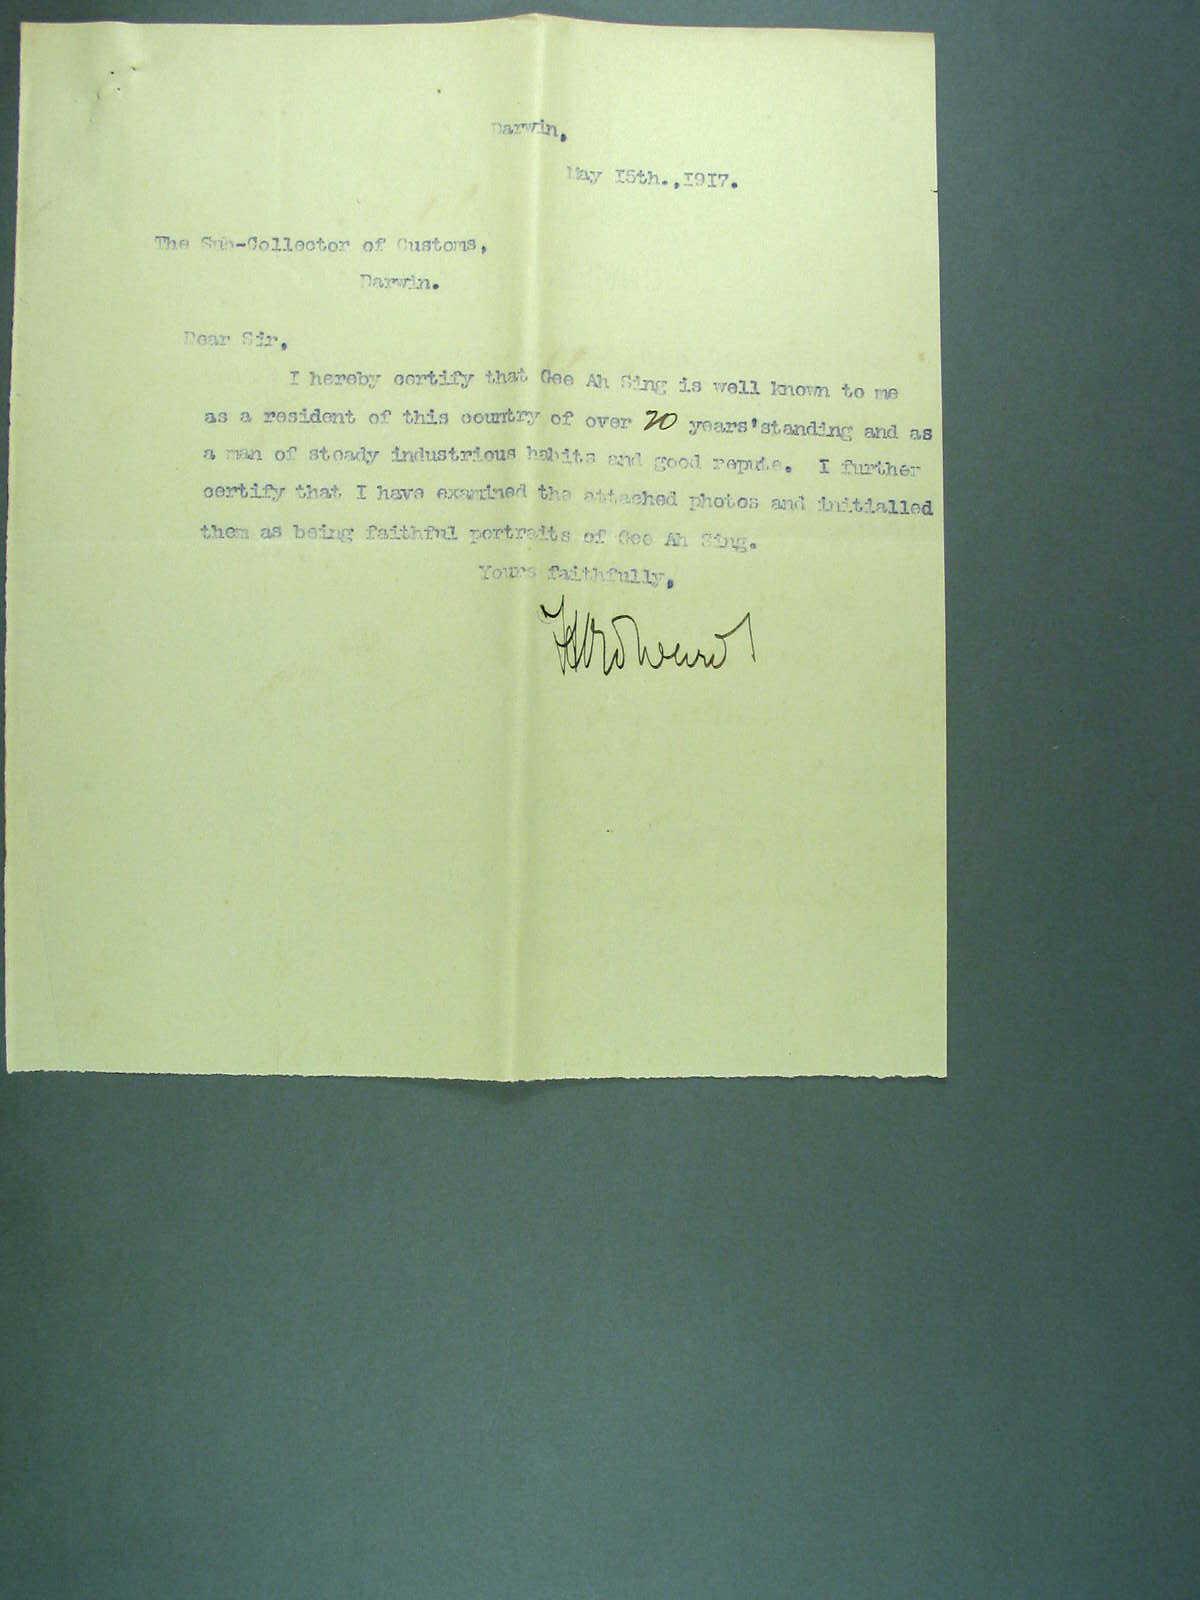 Darwin,
May 15th.,1917.
The Sub-Collector of Customs,
Darwin.
Dear Sir,
I hereby certify that Gee Ah Sing is well known to me
as a resident of this country of over 20 years'standing and as
a man of steady industrious habits and good repute. I further
certify that I have examined the attached photos and initialled
them as being faithful portraits of Gee Ah Sing.
Yours faithfully,